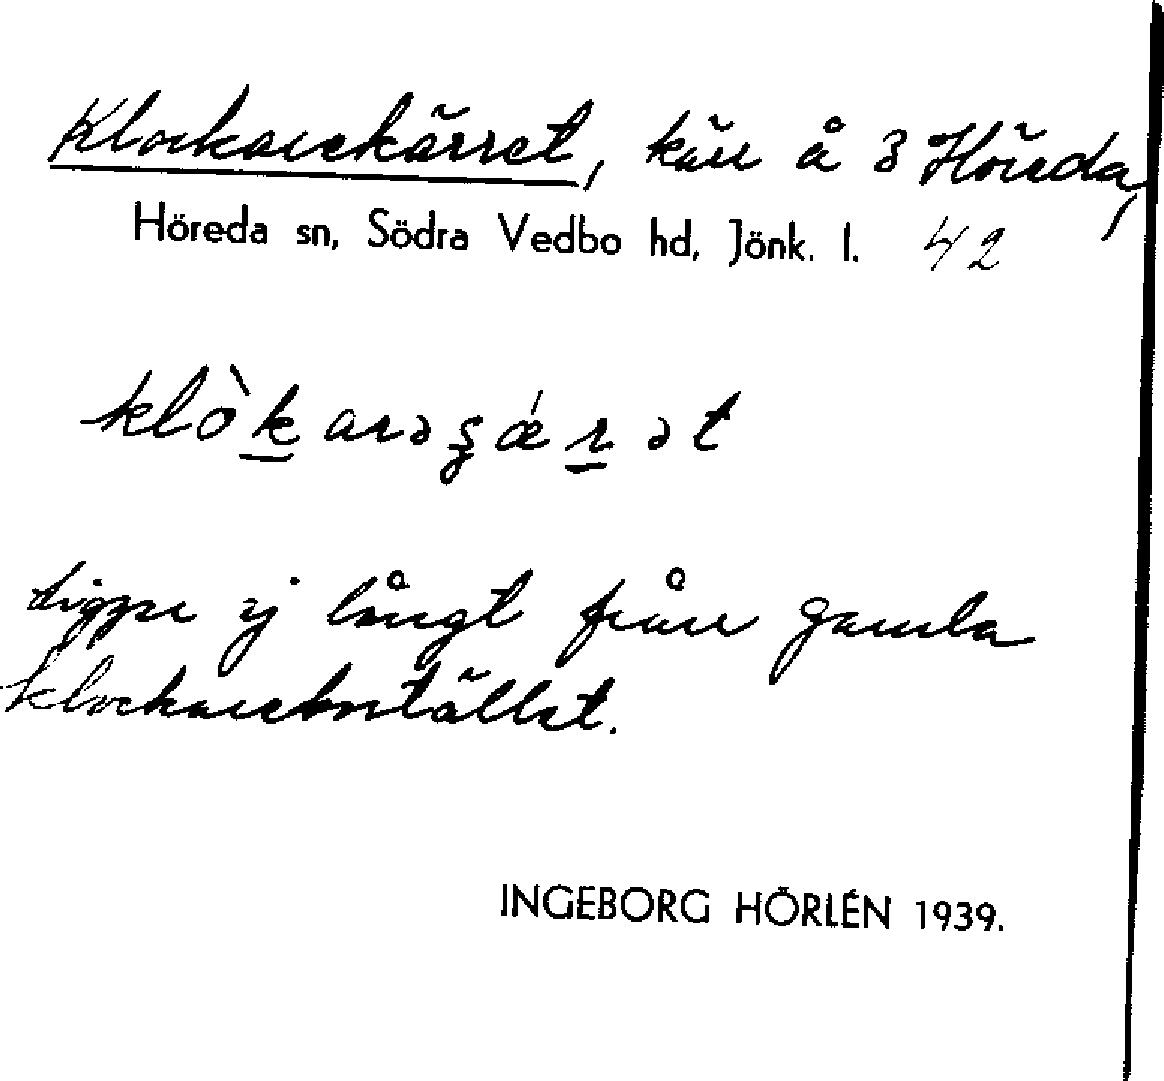 Klockarekärret, kärr å 3 Höreda,
Höreda sn, Södra Vedbo hd, Jönk. l. 42
klòkarəʂǽrət
ligger ej långt från gamla
klockarebostället.
INGEBORG HÖRLÉN 1939.